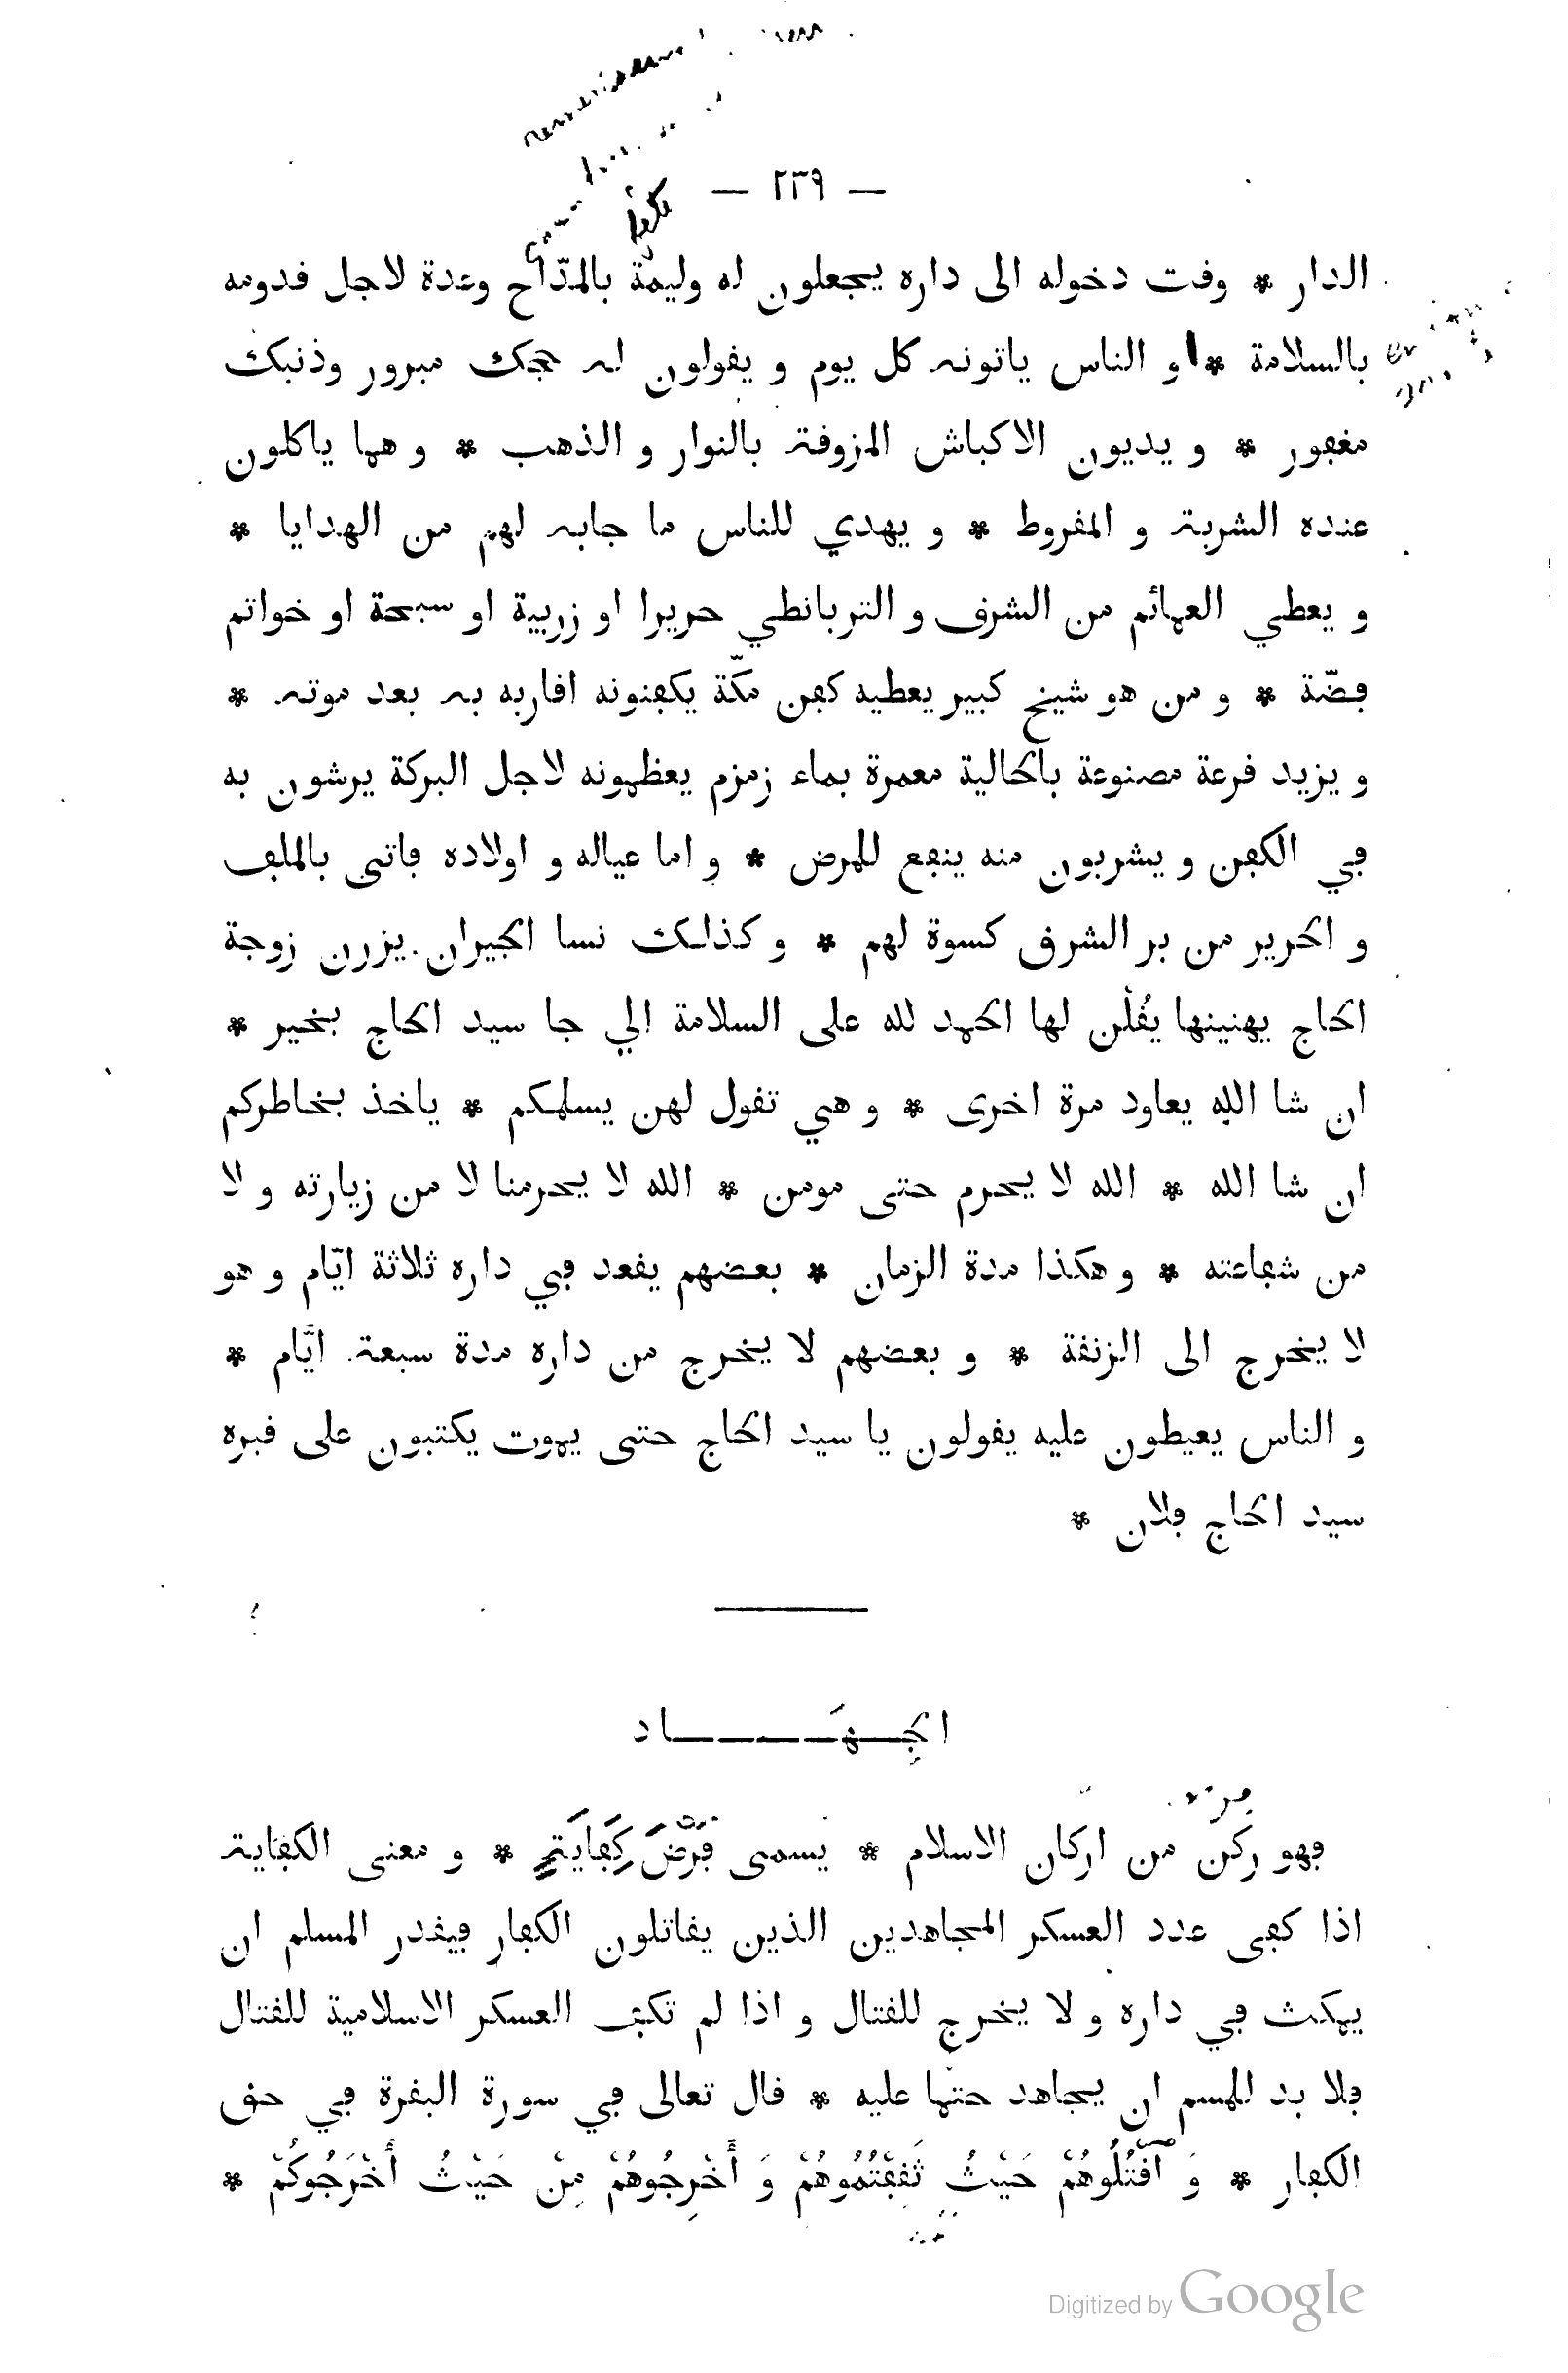 — ٢٣٩ —
الدار * وقت دخوله الى داره يجعلون له وليمة بالمدّاح وعدة لاجل قدومه
بالسلامة * و الناس ياتونه كل يوم و يقولون له حجك مبرور وذنبك
مغفور * و يديون الاكباش المزوقة بالنوار و الذهب * و هما ياكلون
عنده الشربة و المقروط * و يهدي للناس ما جابه لهم من الهدايا *
و يعطي العمائم من الشرق و التربانطي حريرا او زربية او سبحة او خواتم
فضّة * و من هو شيخ كبير يعطيه كفن مكّة يكفنونه اقاربه به بعد موته *
و يزيد قرعة مصنوعة باكالية معمرة بماء زمزم يعظمونه لاجل البركة يرشون به
في الكفن و يشربون منه ينفع للمرض * و اما عياله و اولاده فاتى بالملف
و الحرير من بر الشرق كسوة لهم * و كذلك نسا الجيران يزرن زوجة
الحاج يهنينها يقُلْن لها الحمد لله على السلامة الي جا سيد الحاج بخير *
ان شا الله يعاود مرة اخرى * و هي تقول لهن يسلمكم * ياخذ بخاطركم
ان شا الله * الله لا يحرم حتى مومن * الله لا يحرمنا لا من زيارته و لا
من شفاعته * و هكذا مدة الزمان * بعضهم يقعد في داره ثلاثة ايّام و هو
لا يخرج الى الزنقة * و بعضهم لا يخرج من داره مدة سبعة ايّام *
و الناس يعيطون عليه يقولون يا سيد الحاج حتى يموت يكتبون على قبره
سيد الحاج فلان *
الجِهَاد
فهو ركن من اركان الاسلام * يسمى فَرْضَ كِفَايَةٍ * و معنى الكفاية
اذا كفى عدد العسكر المجاهدين الذين يقاتلون الكفار فيقدر المسلم ان
يمكث في داره و لا يخرج للقتال و اذا لم تكف العسكر الاسلامية للقتال
فلا بد للمسم ان يجاهد حتما عليه * قال تعالى في سورة البقرة في حق
الكفار * وَ ٱقْتُلُوهُمْ حَيْثُ ثَقِفْتُمُوهُمْ وَ أَخْرِجُوهُمْ مِنْ حَيْثُ أَخْرَجُوكُمْ *
Digitized by Google